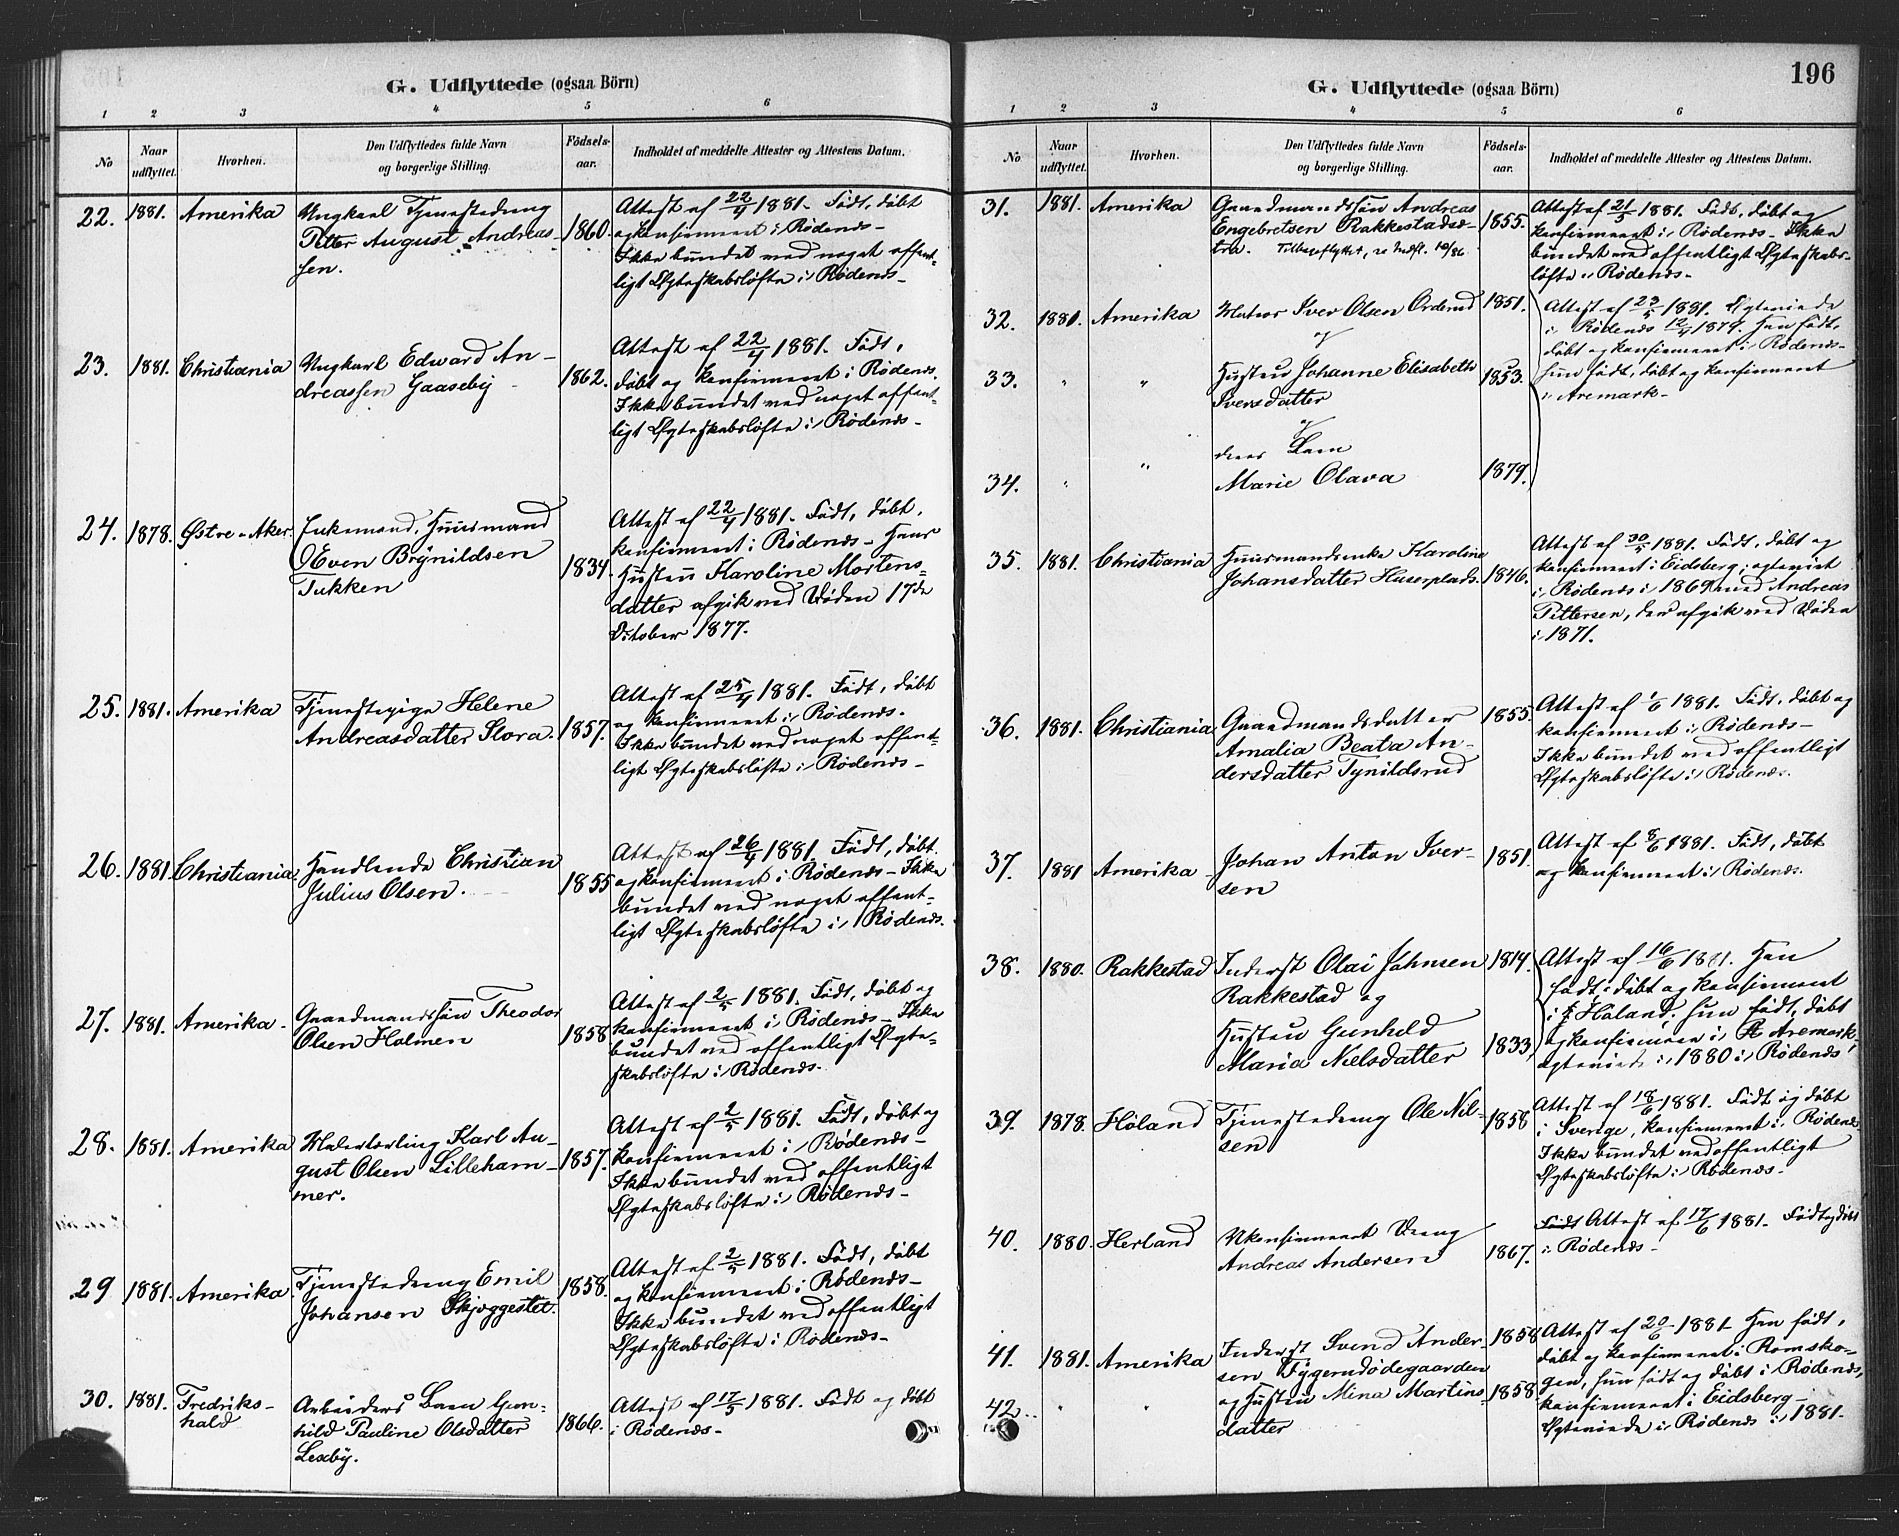 G. Udflyttede (ogsaa Börn)
1 2 3 4 5 6
No Naar udflyttet. Hvorhen. Den Udflyttedes fulde Navn og borgerlige Stilling. Födsels-aar. Indholdet af meddelte Attester og Attestens Datum.
22. 1881. Amerika Ungkarl Tjenestedreng 1860. Attest af 22/4 1881. Födt, döbt
Petter August Andreas- og konfirmeret i Rödenæs-
sen. Ikke bundet ved noget offent-
ligt Ægteskabslöfte i Rödenæs-
23. 1881. Christiania Ungkarl Edvard An- 1862. Attest af 22/4 1881. Födt,
dreassen Gaaseby döbt og konfirmeret i Rödenæs.
Ikke bundet ved noget offent-
ligt Ægteskabslöfte i Rödenæs-
24. 1878. Østre-Aker. Enkemand, Huusmand 1834. Attest af 22/4 1881. Födt, döbt,
Even Brynildsen konfirmeret i Rödenæs- Hans
Tukken Hustru Karoline Mortens-
datter afgik ved Døden 17de
October 1877.
25. 1881. Amerika Tjenestepige Helene 1857. Attest af 25/4 1881. Födt, döbt
Andreasdatter Slora. og konfirmeret i Rödenæs.
Ikke bundet ved noget offent-
ligt Ægteskabslöfte i Rödenæs-
26. 1881. Christiania. Handlende Christian 1855 Attest af 26/4 1881. Födt, döbt.
Julius Olsen. og konfirmeret i Rödenæs- Ikke
bundet ved noget offent-
ligt Ægteskabslöfte i Rödenæs.
27. 1881. Amerika- Gaardmandssön Theodor 1858 Attest af 2/5 1881. Födt, döbt og
Olsen Holmen konfirmeret i Rödenæs- Ikke
bundet ved offentligt Ægte-
skabslöfte i Rödenæs.
28. 1881. Amerika Malerlærling Karl Au- 1857. Attest af 2/5 1881. Födt, döbt og
gust Olsen Lilleham- konfirmeret i Rödenæs-
mer. Ikke bundet ved offentligt
Ægteskabslöfte i Rödenæs-
29 1881. Amerika. Tjenestedreng Emil 1858. Attest af 2/5 1881. Födt, döbt
Johansen Skjøggestet. og konfirmeret i Rödenæs-
Ikke bundet ved offentligt
Ægteskabslöfte i Rödenæs-
30. 1881. Fredriks- Arbeiders Barn Gun- 1866. Attest af 17/5 1881. Födt og döbt
hald hild Pauline Olsdatter i Rödenæs-
Lexby.
196
G. Udflyttede (ogsaa Börn)
1 2 3 4 5 6
No Naar udflyttet. Hvorhen. Den Udflyttedes fulde Navn og borgerlige Stilling. Födsels-aar. Indholdet af meddelte Attester og Attestens Datum.
31. 1881. Amerika Gaardmandssön Andreas 1855. Attest af 21/5 1881. Födt, döbt og
Engebretsen Rakkestadsæ- konfirmeret i Rödenæs- Ikke
tra. Tilbageflyttet, se Indfl. 10/86 bundet ved offentligt Ægteskabs-
löfte i Rödenæs-
32. 1881. Amerika Maurer Iver Olsen Orderud 1851. Attest af 23/5 1881. Ægteviede
og i Rödenæs 12/4 1879. Han födt,
döbt og konfirmeret i Rödenæs-
33. " " Hustru Johanne Elisabeth 1853. hun födt, döbt og konfirmeret
Iversdatter i Aremark-
og
deres Barn
34. " " Marie Olava 1879.
35. 1881. Christiania Huusmandsenke Karoline 1846. Attest af 30/5 1881. Födt, döbt og
Johansdatter Huserplads. konfirmeret i Eidsberg, egteviet
i Rödenæs i 1869 med Andreas
Pettersen, der afgik ved Døden
i 1871.
36. 1881. Christiania Gaardmandsdatter 1855. Attest af 1/6 1881. Födt, döbt og
Amalia Beata An- konfirmeret i Rödenæs-
dersdatter Tynildsrud Ikke bundet ved offentligt
Ægteskabslöfte i Rödenæs.
37. 1881 Amerika Johan Anton Iver- 1851. Attest af 8/6 1881. Födt, döbt
sen og konfirmeret i Rödenæs.
38. 1880. Rakkestad Inderst Olai Johnsen 1814. Attest af 16/6 1881. Han
Rakkestad og födt, döbt og konfirmeret
i Høland. hun födt, döbt
Hustru Gunhild 1833. og konfirmeret i Aremark-
Maria Nielsdatter egteviede i 1880 i Rödenæs
39. 1878. Høland Tjenestedreng Ole Nil- 1858 Attest af 18/6 1881. Födt og döbt
sen i Sverige, konfirmeret i Rödenæs
Ikke bundet ved offentligt
Ægteskabslöfte i Rödenæs-
40. 1880. Herland Ukonfirmeret Dreng 1867. Födt Attest af 17/6 1881. Födt og döbt
Andreas Andersen i Rödenæs-
41. 1881. Amerika Inderst Svend Ander- 1858 Attest af 20/6 1881 Han födt,
sen Tygernödegaarden döbt og konfirmeret i Romsko-
42. " " og Hustru Mina Martins- 1858. gen, hun födt og döbt i Rödenæs,
datter konfirmeret i Eidsberg-
Ægteviede i Rödenæs i 1881.